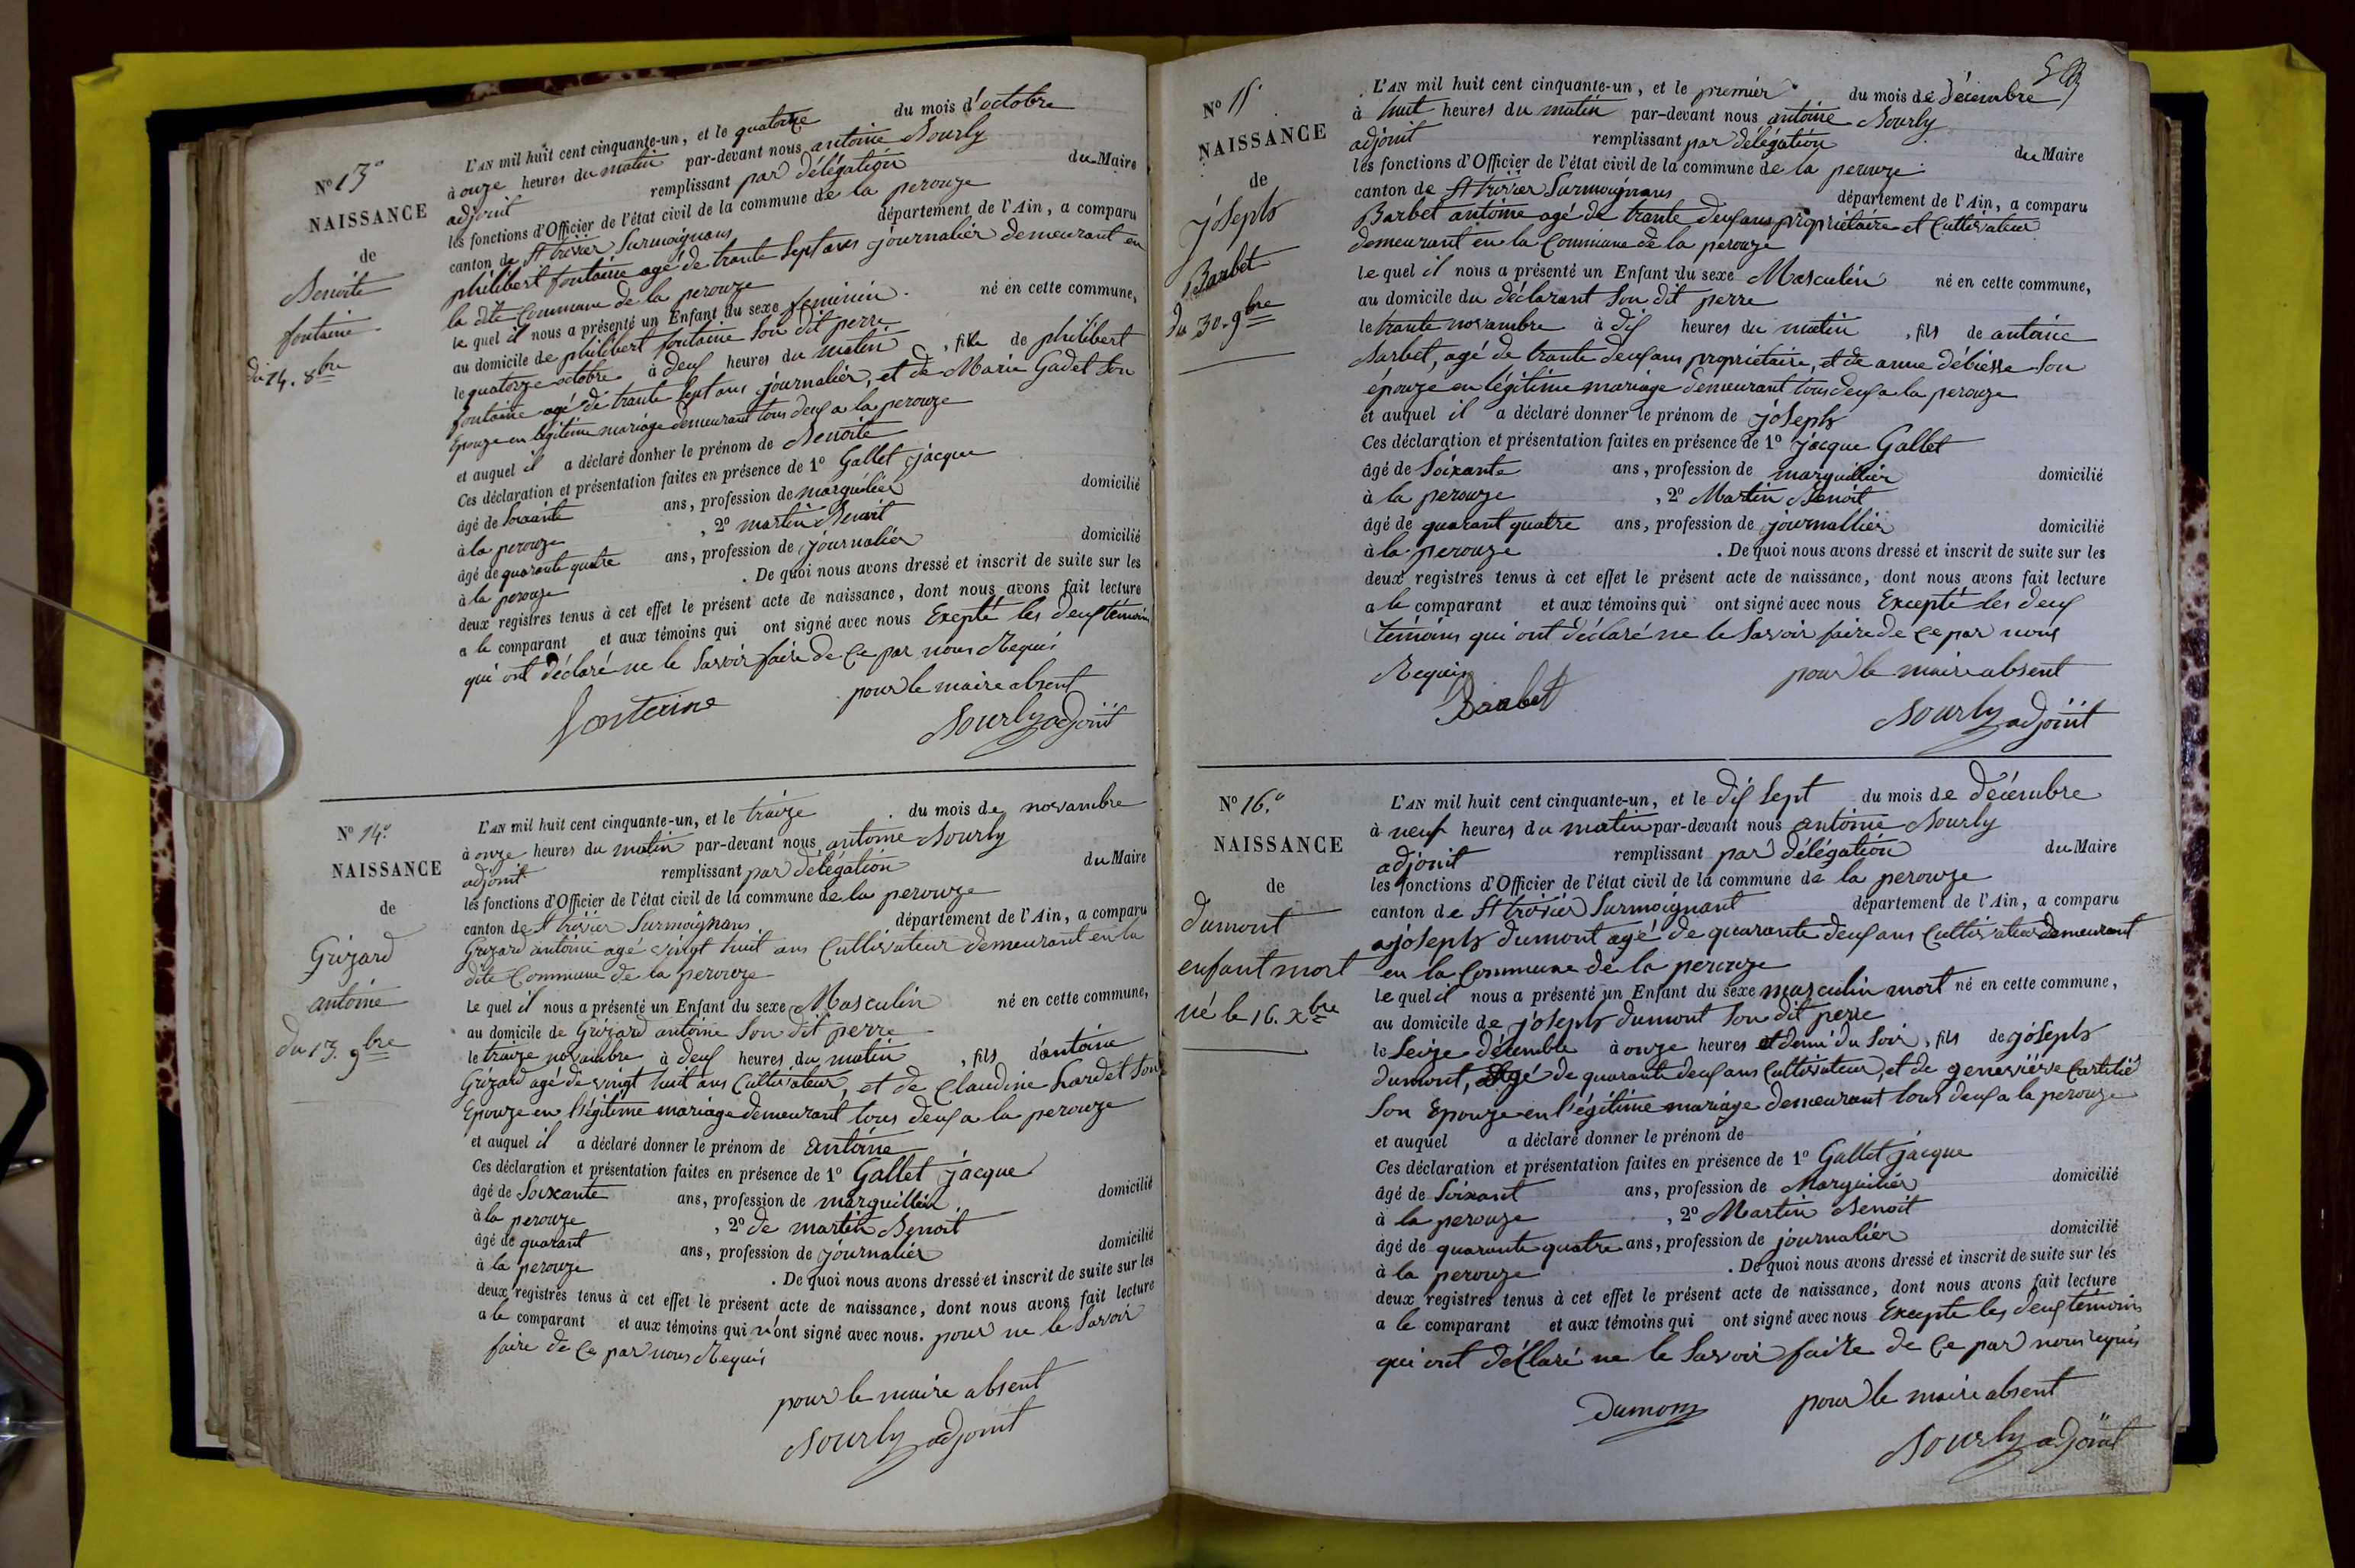 N° 13°
NAISSANCE
de
Benoite
fontaine
du 14. 8bre
L'AN mil huit cent cinquante-un, et le quatorze du mois d'octobre
à onze heures du matin par-devant nous antoine Nourly
adjoint remplissant par délégation du Maire
les fonctions d'Officier de l'état civil de la commune de la perouze
canton de St trivier Surmoignans département de l'Ain, a comparu
philibert fontaine agé de trante Sept ans journalier demeurant en
la dite Commune de la perouze
le quel il nous a présenté un Enfant du sexe feminin né en cette commune,
au domicile de philibert fontaine Son dit perre
le quatorze octobre à deux heures du matin, fille de philibert
fontaine agé de trante Sept ans journalier, et de Marie Gadet Son
Epouze en légitime mariage demeurant tous deux a la perouze
et auquel il a déclaré donner le prénom de Benoite
Ces déclaration et présentation faites en présence de 1° Gallet jacque
âgé de Soixante ans, profession de marguélier domicilié
à la perouze, 2° martin Benoit
âgé de quarante quatre ans, profession de journalier domicilié
à la perouze. De quoi nous avons dressé et inscrit de suite sur les
deux registres tenus à cet effet le présent acte de naissance, dont nous avons fait lecture
a le comparant et aux témoins qui ont signé avec nous Exepté les deux témoins
qui ont déclaré ne le Savoir faire de Ce par nous Requis
pour le maire absent
fontaine
Nourly adjoint
N° 14°
NAISSANCE
de
Grizard
antoine
du 13. 9bre
L'AN mil huit cent cinquante-un, et le traize du mois de novambre
à onze heures du matin par-devant nous antoine Nourly
adjoint remplissant par délégation du Maire
les fonctions d'Officier de l'état civil de la commune de la perouze
canton de St trivier Surmoignans département de l'Ain, a comparu
Grizard antoine agé vingt huit ans Cultivateur demeurant en la
dite Commune de la perouze
le quel il nous a présenté un Enfant du sexe Masculin né en cette commune,
au domicile de Grizard antoine Son dit perre
le traize novambre à deux heures du matin, fils d'antoine
Grizard agé de vingt huit ans Cultivateur, et de Claudine hardet Son
Epouze en légitime mariage demeurant tous deux a la perouze
et auquel il a déclaré donner le prénom de antoine
Ces déclaration et présentation faites en présence de 1° Gallet jacque
âgé de Soixante ans, profession de marguillier domicilié
à la perouze, 2° de martin Benoit
âgé de quarant ans, profession de journalier domicilié
à la perouze. De quoi nous avons dressé et inscrit de suite sur les
deux registres tenus à cet effet le présent acte de naissance, dont nous avons fait lecture
a le comparant et aux témoins qui n'ont signé avec nous. pour ne le Savoir
faire de Ce par nous Requis
pour le maire absent
Nourly adjoint
N° 15°
NAISSANCE
de
joseph
Barbet
du 30. 9bre
L'AN mil huit cent cinquante-un, et le premier du mois de Décembre
à huit heures du matin par-devant nous antoine Nourly
adjoint remplissant par délégation du Maire
les fonctions d'Officier de l'état civil de la commune de la perouze
canton de St trivier Surmoignans département de l'Ain, a comparu
Barbet antoine agé de trante deux ans propriétaire et Cultivateur
demeurant en la Commune de la perouze
le quel il nous a présenté un Enfant du sexe Masculin né en cette commune,
au domicile du déclarant Son dit perre
le trante novambre à dix heures du matin, fils de antoine
Barbet, agé de trante deux ans propriétaire, et de anne débiesse Son
épouze en légitime mariage demeurant tous deux a la perouze
et auquel il a déclaré donner le prénom de joseph
Ces déclaration et présentation faites en présence de 1° jacque Gallet
âgé de Soixante ans, profession de marguillier domicilié
à la perouze, 2° Martin Benoit
âgé de quarant quatre ans, profession de journallier domicilié
à la perouze. De quoi nous avons dressé et inscrit de suite sur les
deux registres tenus à cet effet le présent acte de naissance, dont nous avons fait lecture
a le comparant et aux témoins qui ont signé avec nous Excepté les deux
témoins qui ont déclaré ne le Savoir faire de Ce par nous
Requis pour le maire absent
Barbet
Nourly adjoint
N° 16°
NAISSANCE
de
dumont
enfant mort
né le 16. Xbre
L'AN mil huit cent cinquante-un, et le dix Sept du mois de Décembre
à neuf heures du matin par-devant nous antoine Nourly
adjoint remplissant par délégation du Maire
les fonctions d'Officier de l'état civil de la commune de la perouze
canton de St trivier Surmoignant département de l'Ain, a comparu
joseph dumont agé de quarante deux ans Cultivateur demeurant
en la Commune de la perouze
le quel il nous a présenté un Enfant du sexe masculin mort né en cette commune,
au domicile de joseph dumont Son dit perre
le Seize décembre à onze heures et demi du Soir, fils de joseph
dumont, agé de quarante deux ans Cultivateur, et de geneviève Cartelié
Son Epouze en légitime mariage demeurant tous deux a la perouze
et auquel a déclaré donner le prénom de
Ces déclaration et présentation faites en présence de 1° Gallet jacque
âgé de Soixant ans, profession de Marguilier domicilié
à la perouze, 2° Martin Benoit
âgé de quarante quatre ans, profession de journalier domicilié
à la perouze. De quoi nous avons dressé et inscrit de suite sur les
deux registres tenus à cet effet le présent acte de naissance, dont nous avons fait lecture
a le comparant et aux témoins qui ont signé avec nous Excepte les deux témoins
qui ont déClaré ne le Savoir faire de Ce par nous requis
Dumont pour le maire absent
Nourly adjoint